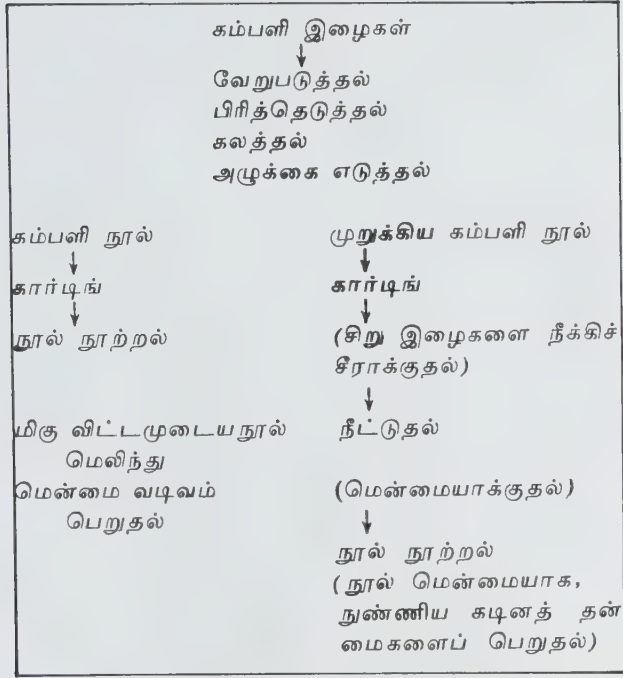 கம்பளி இழைகள்
வேறுபடுத்தல்
பிரித்தெடுத்தல்
கலத்தல்
அழுக்கை எடுத்தல்
கம்பளி நூல்
கார்டிங்
நூல் நூற்றல்
மிகு விட்டமுடைய நூல்
மெலிந்து
மென்மை வடிவம்
பெறுதல்
முறுக்கிய கம்பளி நூல்
கார்டிங்
(சிறு இழைகளை நீக்கிச்
சீராக்குதல்)
நீட்டுதல்
(மென்மையாக்குதல்)
நூல் நூற்றல்
(நூல் மென்மையாக,
நுண்ணிய கடினத் தன்
மைகளைப் பெறுதல்)